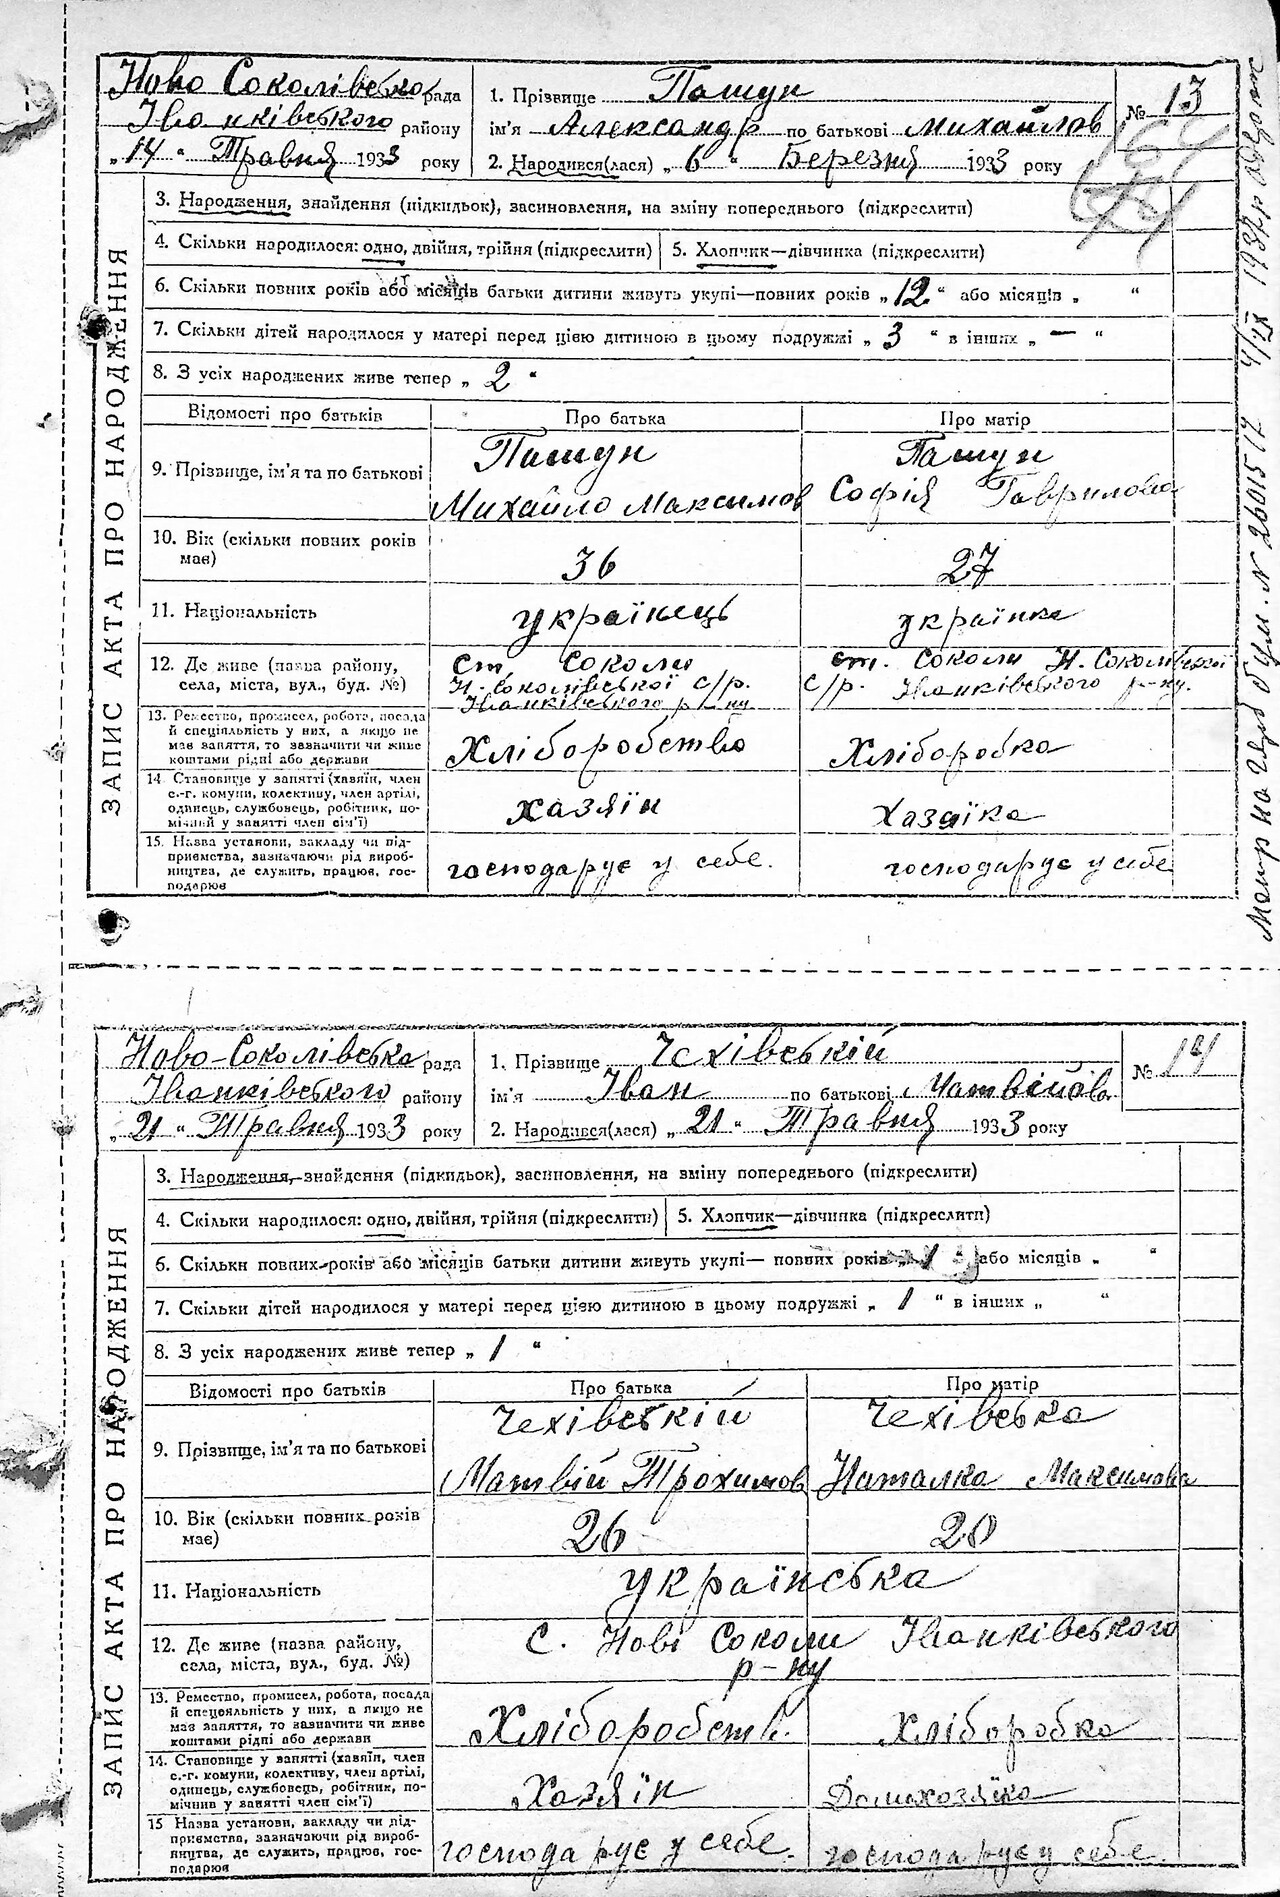 Ново Соколівська рада
Іванківського району
„14 " Травня 1933 року
1. Прізвище Пашун
ім'я Александр по батькові Михайлов
2. Народився(лася) „ 6 " Березня 1933 року
№ 13
ЗАПИС АКТА ПРО НАРОДЖЕННЯ
3. Народження, знайдення (підкидьок), засиновлення, на зміну попереднього (підкреслити)
4. Скільки народилося: одно, двійня, трійня (підкреслити)
5. Хлопчик—дівчинка (підкреслити)
6. Скільки повних років або місяців батьки дитини живуть укупі—повних років „ 12 " або місяців „ "
7. Скільки дітей народилося у матері перед цією дитиною в цьому подружжі „ 3 " в інших „ — "
8. З усіх народжених живе тепер „ 2 "
Відомості про батьків
Про батька
Про матір
9. Прізвище, ім'я та по батькові
Пашун
Михайло Максимов
Пашун
Софія Гаврилова
10. Вік (скільки повних років
має)
36
27
11. Національність
українець
українка
12. Де живе (назва району,
села, міста, вул., буд. №)
ст Соколи
Н. Соколівської с/р.
Іванківського р-ну
ст. Соколи Н. Соколівської
с/р. Іванківського р-ну.
13. Ремество, промисел, робота, посада
й спеціяльність у них, а якщо не
має заняття, то зазначити чи живе
коштами рідні або держави
Хліборобство
Хліборобка
14. Становище у занятті (хазяїн, член
с.-г. комуни, колективу, член артілі,
одинець, службовець, робітник, по-
мічний у занятті член сім'ї)
хазяїн
Хазяїка
15. Назва установи, закладу чи під-
приємства, зазначаючи рід вироб-
ництва, де служить, працює, гос-
подарює
господарує у себе.
господарує у себе
Ново-Соколівська рада
Іванківського району
„ 21 " Травня 1933 року
1. Прізвище Чехівській
ім'я Іван по батькові Матвійов.
2. Народився(лася) „ 21 " Травня 1933 року
№ 14
ЗАПИС АКТА ПРО НАРОДЖЕННЯ
3. Народження, знайдення (підкидьок), засиновлення, на зміну попереднього (підкреслити)
4. Скільки народилося: одно, двійня, трійня (підкреслити)
5. Хлопчик—дівчинка (підкреслити)
6. Скільки повних років або місяців батьки дитини живуть укупі— повних років „ 1 " або місяців „ "
7. Скільки дітей народилося у матері перед цією дитиною в цьому подружжі „ 1 " в інших „ "
8. З усіх народжених живе тепер „ 1 "
Відомості про батьків
Про батька
Про матір
9. Прізвище, ім'я та по батькові
Чехівській
Матвій Трохимов
Чехівська
Наталка Максимова
10. Вік (скільки повних років
має)
26
20
11. Національність
українська
12. Де живе (назва району,
села, міста, вул., буд. №)
с. Нові Соколи Іванківського
р-ну
13. Ремество, промисел, робота, посада
й спецояльність у них, а якщо не
має заняття, то зазначити чи живе
коштами рідні або держави
Хліборобств.
Хліборобка
14. Становище у занятті (хазяїн, член
с.-г. комуни, колективу, член артілі,
одинець, службовець, робітник, по-
мічник у занятті член сім'ї)
Хазяїн
Домихозяїка
15 Назва установи, закладу чи під-
приємства, зазначаючи рід вироб-
ництва, де служить, працює, гос-
подарює
господарує у себе.
господарує у себе.